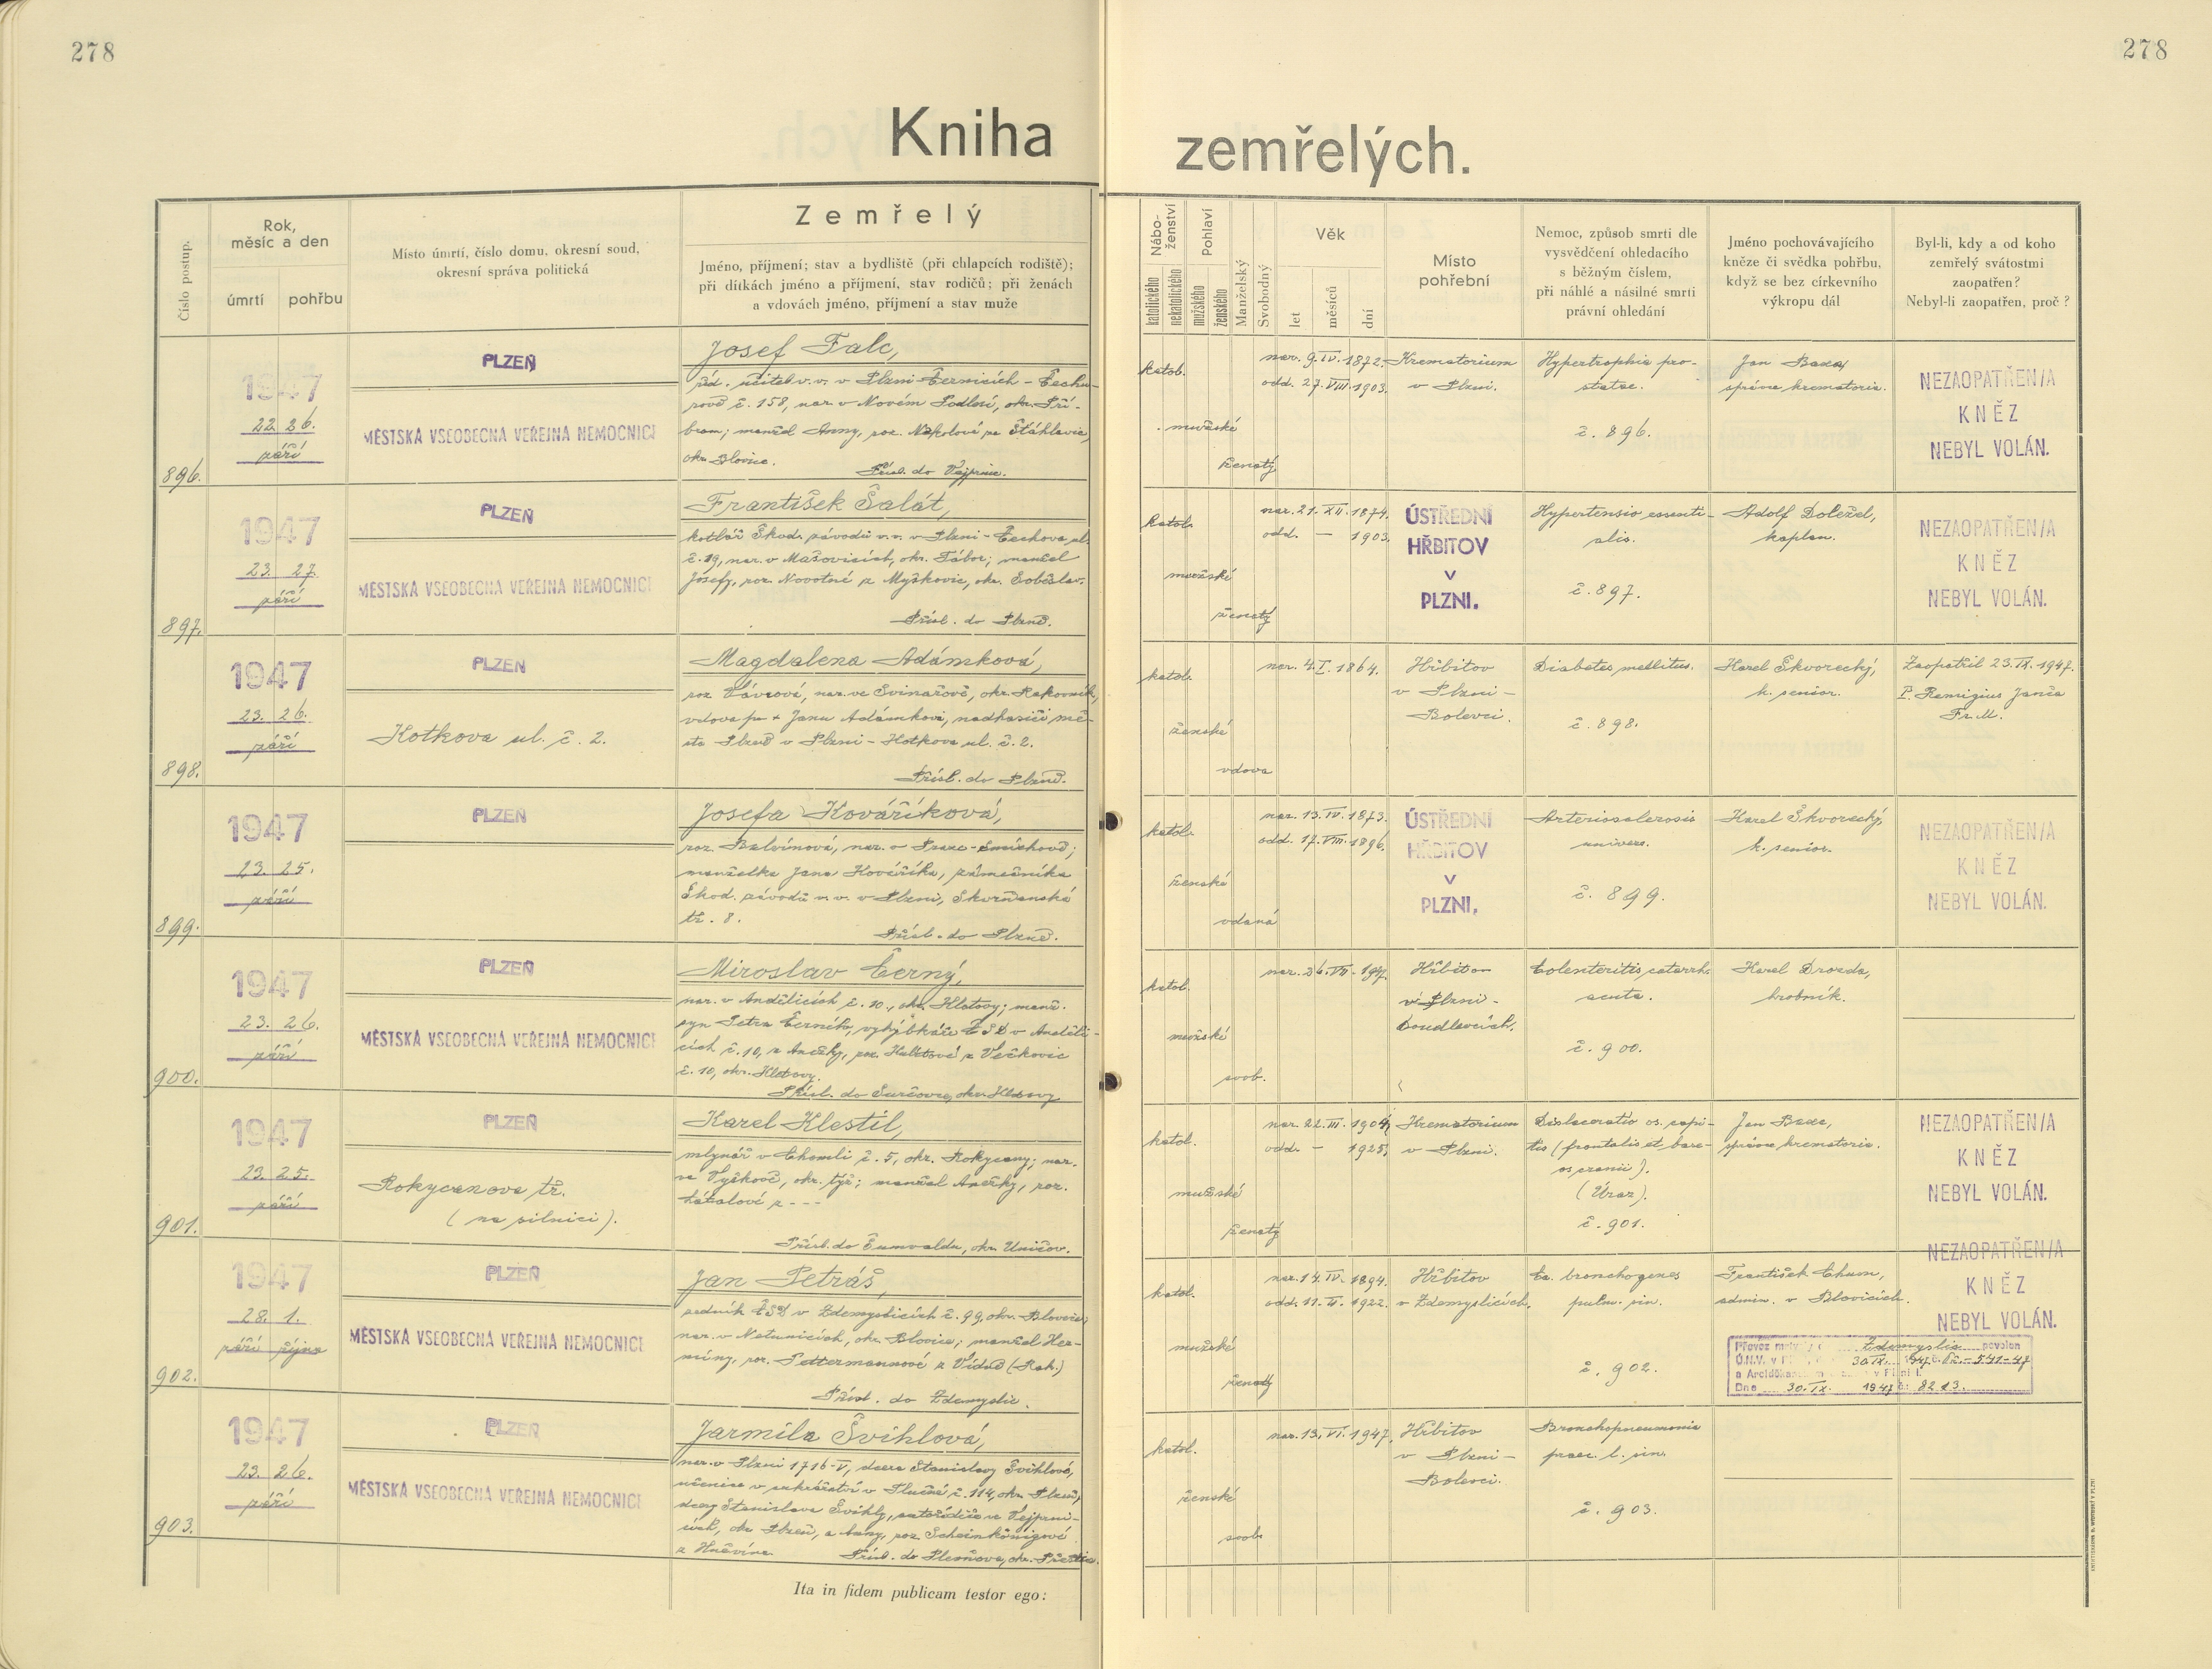 278
278
Kniha
zemřelých.
Číslo postup.
Rok,
měsíc a den
úmrtí
pohřbu
Místo úmrtí, číslo domu, okresní soud,
okresní správa politická
Zemřelý
Jméno, příjmení; stav a bydliště (při chlapcích rodiště);
při dítkách jméno a příjmení, stav rodičů; při ženách
a vdovách jméno, příjmení a stav muže
Nábo-
ženství
katolického
nekatolického
Pohlaví
mužského
ženského
Manželský
Svobodný
Věk
let
měsíců
dní
Místo
pohřební
Nemoc, způsob smrti dle
vysvědčení ohledacího
s běžným číslem,
při náhlé a násilné smrti
právní ohledání
Jméno pochovávajícího
kněze či svědka pohřbu,
když se bez církevního
výkropu dál
Byl-li, kdy a od koho
zemřelý svátostmi
zaopatřen?
Nebyl-li zaopatřen, proč?
896.
1947
22. 26.
září
PLZEŇ
MĚSTSKÁ VŠEOBECNÁ VEŘEJNÁ NEMOCNICE
Josef Falc,
říd. učitel v.v. v Plzni-Černicích - Čechu-
rově č. 158, nar. v Novém Podlesí, okr. Pří-
bram; manžel Anny, roz. ze Šťáhlavic,
okr. Blovice.
Přísl. do Vejprnic.
katol.
mužské
ženatý
nar. 9. IV. 1872.
odd. 27. VIII. 1903.
Krematorium
v Plzni.
Hypertrophia pro-
statae.
č. 896.
Jan Baxa,
správce krematoria.
NEZAOPATŘEN/A
KNĚZ
NEBYL VOLÁN.
897.
1947
23. 27.
září
PLZEŇ
MĚSTSKÁ VŠEOBECNÁ VEŘEJNÁ NEMOCNICE
František Šalát,
kotlář Škod. závodů v.v. v Plzni - Čechova ul.
č. 19, nar. v Mašovicích, okr. Tábor; manžel
Josefy, roz. Novotné z Myškovic, okr. Soběslav.
Přísl. do Plzně.
katol.
mužské
ženatý
nar. 21. XII. 1874.
odd. — 1903.
ÚSTŘEDNÍ
HŘBITOV
V
PLZNI.
Hypertensio essenti-
alis.
č. 897.
Adolf Doležel,
kaplan.
NEZAOPATŘEN/A
KNĚZ
NEBYL VOLÁN.
898.
1947
23. 26.
září
PLZEŇ
Kotkova ul. č. 2.
Magdalena Adámková,
roz. Vávrová, nar. ve Svinařově, okr. Rakovník,
vdova po + Janu Adámkovi, nadhasiči mě-
sta Plzně v Plzni - Kotkova ul. č. 2.
Přísl. do Plzně.
katol.
ženské
vdova
nar. 4. I. 1864.
Hřbitov
v Plzni -
Bolevci.
Diabetes mellitus.
č. 898.
Karel Škvorecký,
k. senior.
Zaopatřil 23. IX. 1947.
P. Remigius Janča
Fr. M.
899.
1947
23. 25.
září
PLZEŇ
Josefa Kováříková,
roz. Balvínová, nar. v Praze-Smíchově;
manželka Jana Kováříka, zámečníka
Škod. závodů v.v. v Plzni, Skvrňanská
tř. 8.
Přísl. do Plzně.
katol.
ženské
vdaná
nar. 13. IV. 1873.
odd. 17. VIII. 1896.
ÚSTŘEDNÍ
HŘBITOV
V
PLZNI.
Arteriosclerosis
univers.
č. 899.
Karel Škvorecký,
k. senior.
NEZAOPATŘEN/A
KNĚZ
NEBYL VOLÁN.
900.
1947
23. 26.
září
PLZEŇ
MĚSTSKÁ VŠEOBECNÁ VEŘEJNÁ NEMOCNICE
Miroslav Černý,
nar. v Andělicích č. 10., okr. Klatovy; manž.
syn Petra Černého, výhybkáře ČSD v Anděli-
cích č. 10, a Anežky, roz. z Večkovic
č. 10, okr. Klatovy.
Přísl. do okr. Klatovy
katol.
mužské
svob.
nar. 26. VII. 1947.
Hřbitov
v Plzni -
Doudlevcích.
Colenteritis catarrh.
acuta.
č. 900.
Karel Drozda,
hrobník.
901.
1947
23. 25.
září
PLZEŇ
Rokycanova tř.
(na silnici).
Karel Klestil,
mlynář v Chomli č. 5, okr. Rokycany; nar.
ve Vyškově, okr. týž; manžel Anežky, roz.
z - - -
Přísl. do Šumvaldu, okr. Uničov.
katol.
mužské
ženatý
nar. 22. III. 1904,
odd. — 1925.
Krematorium
v Plzni.
Dislaceratio os. capi-
tis (frontalis et base-
os cranii).
(Úraz).
č. 901.
Jan Baxa,
správce krematoria.
NEZAOPATŘEN/A
KNĚZ
NEBYL VOLÁN.
902.
1947
28. 1.
září října
PLZEŇ
MĚSTSKÁ VŠEOBECNÁ VEŘEJNÁ NEMOCNICE
Jan Petráš,
zedník ČSD v Zdemyslicích č. 99, okr. Blovice;
nar. v Netunicích, okr. Blovice; manžel Her-
míny, roz. Pettermannové z Vídně (Rak.)
Přísl. do Zdemyslic.
katol.
mužské
ženatý
nar. 14. IV. 1894.
odd. 11. II. 1922.
Hřbitov
v Zdemyslicích.
Ca. bronchogenes
pulm. sin.
č. 902.
František Chum,
admin. v Blovicích.
NEZAOPATŘEN/A
KNĚZ
NEBYL VOLÁN.
Převoz mrtvoly Zdemyslic povolen
Ú.N.V. v 30. IX. 1947 č. Pž.-541-47
a Arciděkan v Plzni I.
Dne 30. IX. 1947 č: 8213.
903.
1947
23. 26.
září
PLZEŇ
MĚSTSKÁ VŠEOBECNÁ VEŘEJNÁ NEMOCNICE
Jarmila Švihlová,
nar. v Plzni 1716-V, dcera Stanislavy Švihlové,
učenice v cukrářství v Tlučné č. 114, okr. Plzeň,
dcery Stanislava Švihly, ve Vejprni-
cích, okr. Plzeň, a Anny, roz. Scheinkönigové
z Hněvína
Přísl. do Plesňova, okr. Přeštice.
katol.
ženské
svob.
nar. 13. VI. 1947.
Hřbitov
v Plzni -
Bolevci.
Bronchopneumonia
praec. l. sin.
č. 903.
Ita in fidem publicam testor ego: